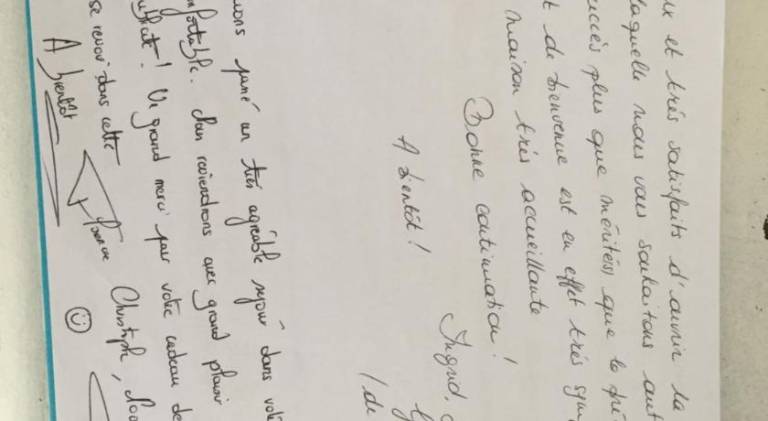 ux et très satisfaits d'ouvrir la
laquelle nous vous souhaitons aut
uccès plus que mérités que le pré
t de bienvenue est en effet très sym
maison très accueillante
Bonne continuation !
A bientôt !
Ingrid,
/ de
vons passé un très agréable séjour dans vot
nfortable. Nous reviendrons avec grand plaisir
! Un grand merci pour votre cadeau de
se revoir dans cette
Christoph,
A bientôt